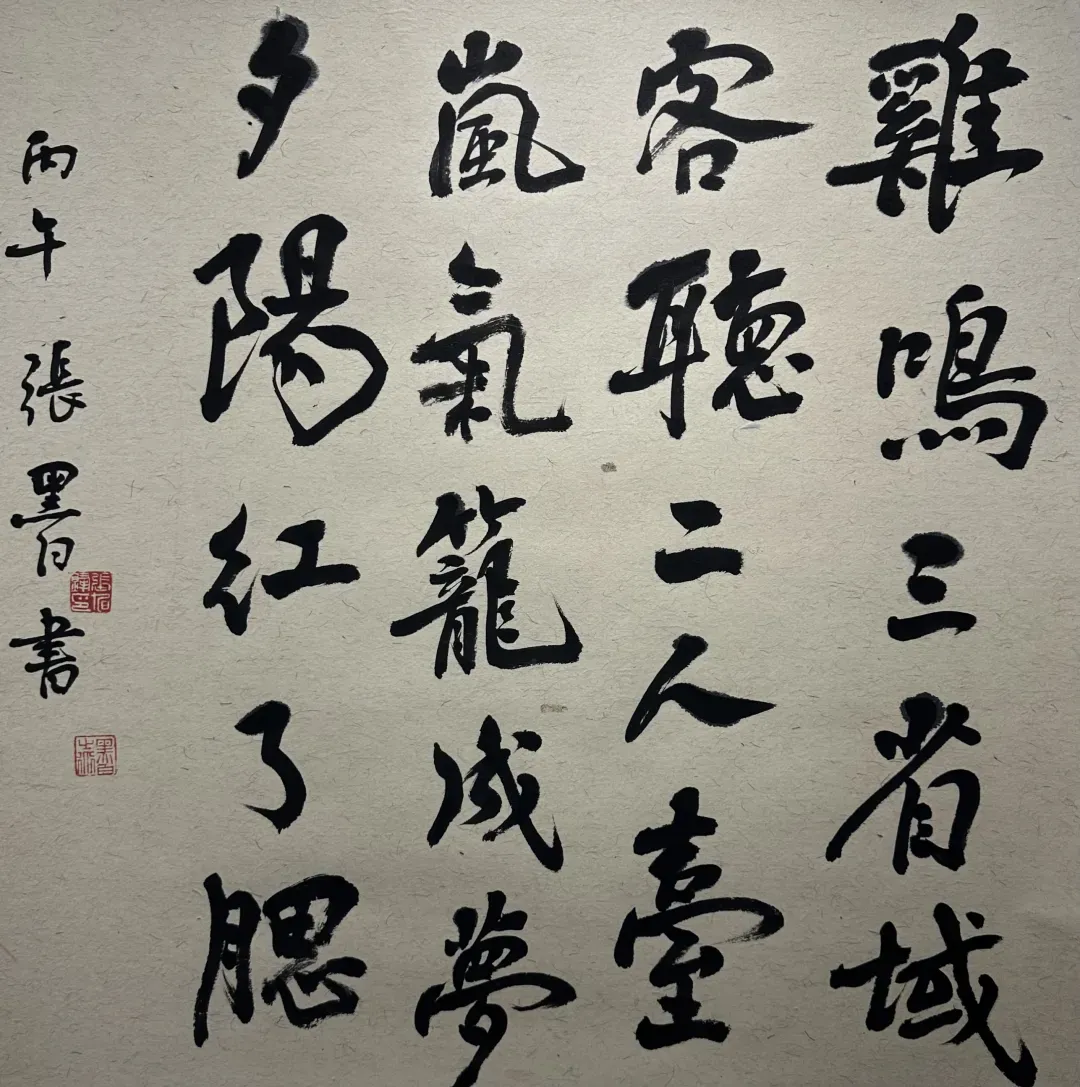 雞鳴三省域
客聽二人臺
嵐氣籠成夢
夕陽紅了腮
丙午張黑白書